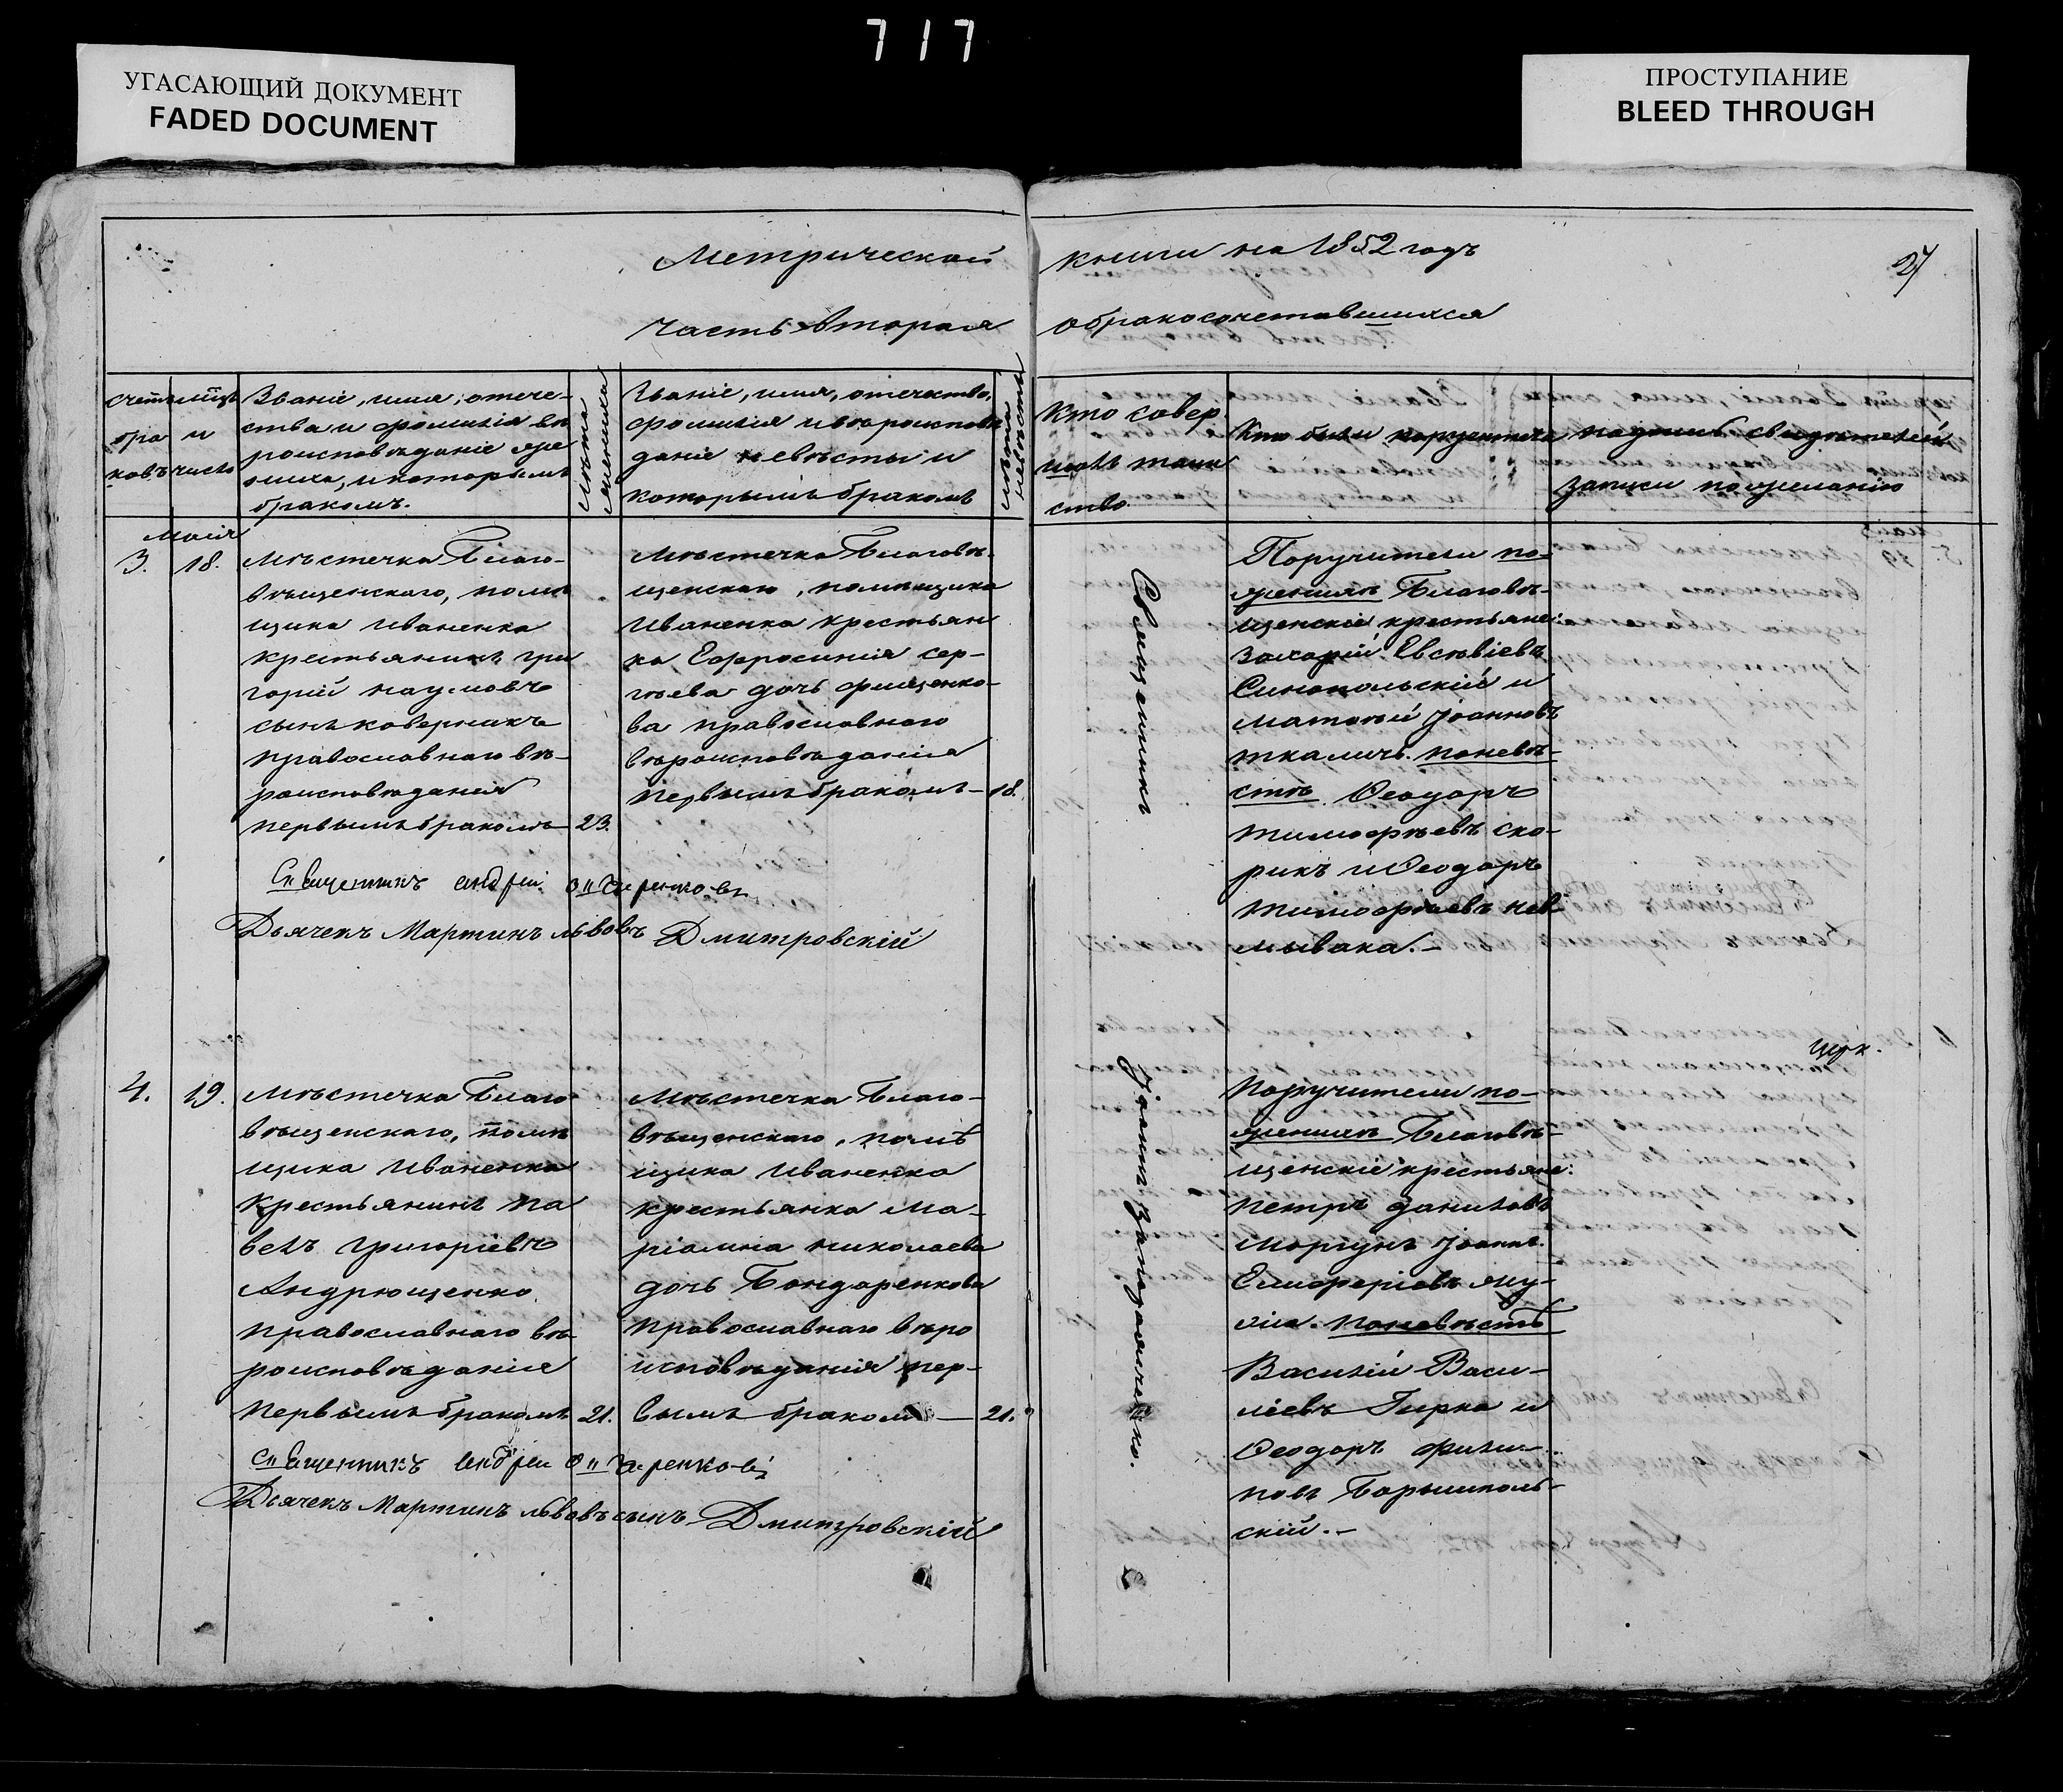 717
УГАСАЮЩИЙ ДОКУМЕНТ
FADED DOCUMENT
ПРОСТУПАНИЕ
BLEED THROUGH
Метрической книги на 1852 годъ
27
Часть вторая о бракосочетавшихся
счетъ
бра
ковъ
мѣсяцъ
и
число
Званіе, имя, отече-
ство и фамилія вѣ
роисповѣданіе же
ниха, и которымъ
бракомъ.
Лѣта
жениха
Званіе, имя, отечество,
фамилія и вѣроисповѣ
даніе невѣсты и
которымъ бракомъ
лѣта
невѣсты
Кто совер
шалъ таин
ство
Кто были поручители
подпись свидѣтелей
записи по желанію
Маія
3.
18.
Мѣстечка Благо-
вѣщенскаго, помѣ
щика Иваненка
крестьянинъ Гри
горій Наумовъ
сынъ Коверникъ
православнаго вѣ-
роисповѣданія
первымъ бракомъ
23.
Мѣстечка Благовѣ-
щенскаго, помѣщика
Иваненка крестьян
ка Ефросинія Сер-
гѣева дочь Фищенко-
ва православнаго
вѣроисповѣданія
первымъ бракомъ —
18.
Священникъ Іоаннъ
Поручители по-
женихѣ Благовѣ-
щенскіе крестьяне:
Захарій Евсѣвіевъ
Синопольскій и
Матѳей Іоанновъ
Ткаличъ. по невѣ-
стѣ Ѳеодоръ
Тимофѣевъ Ско-
рикъ и Ѳеодоръ
Тимофѣевъ Не-
мывака. —
Священникъ Андрей
Дьячекъ Мартинъ Львовъ Дмитровскій
церк.
4.
19.
Мѣстечка Благо
вѣщенскаго, помѣ
щика Иваненка
крестьянинъ Па
велъ Григоріевъ
Андрющенко
православнаго вѣ-
роисповѣданія
первымъ бракомъ
21.
Мѣстечка Благо-
вѣщенскаго, помѣ
щика Иваненка
крестьянка Ма-
ріамна Николаева
дочь Бондаренкова
православнаго вѣро
исповѣданія пер-
вымъ бракомъ —
21.
Поручители по-
женихѣ Благовѣ-
щенскіе крестьяне:
Петръ Даниловъ
Моргунъ Іоаннъ
Елиферіевъ
по невѣстѣ
Василій Васи-
ліевъ Гирка и
Ѳеодоръ Фили-
повъ Барышполь-
скій. —
Священникъ Андрей
Дьячекъ Мартинъ Львовъ сынъ Дмитровскій